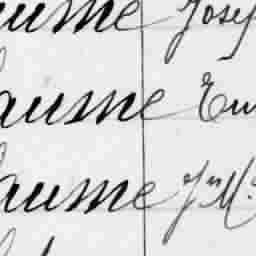 aume Josef
aume Em
aume Jn M.